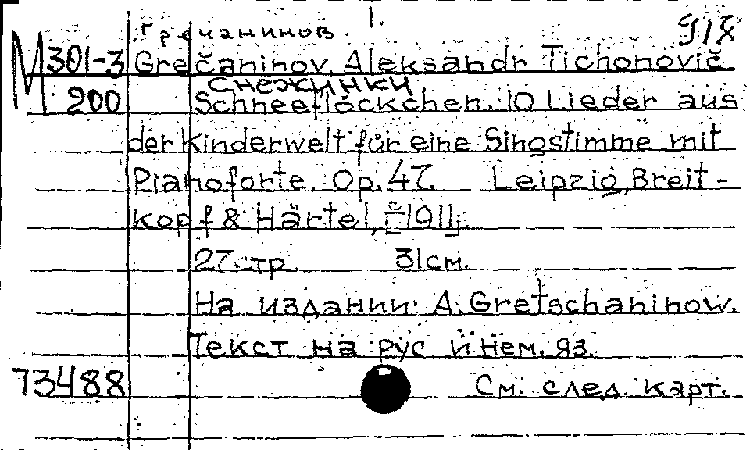 Гречанинов. 1. 918
М 301-3 Grečaninov, Aleksandr Tichonovič
Снежинки
200 Schneeflöckchen. 10 Lieder aus
der Kinderwelt für eine Singstimme mit
Pianoforte. Op. 47. Leipzig, Breit-
kopf & Härtel, [1911].
27 стр. 31 см.
На издании: A. Gretschaninow.
Текст на рус и нем. яз.
73488 См. след. карт.